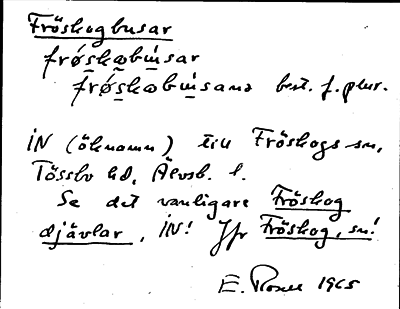 Fröskogbusar
frǿskωbúsar
frǿskωbúsana best. f. plur.
IN (öknamn) till Fröskogs sn,
Tössbo hd, Älvsb. l.
Se det vanligare Fröskog
djävlar, IN! Jfr Fröskog, sn!
E. 1965